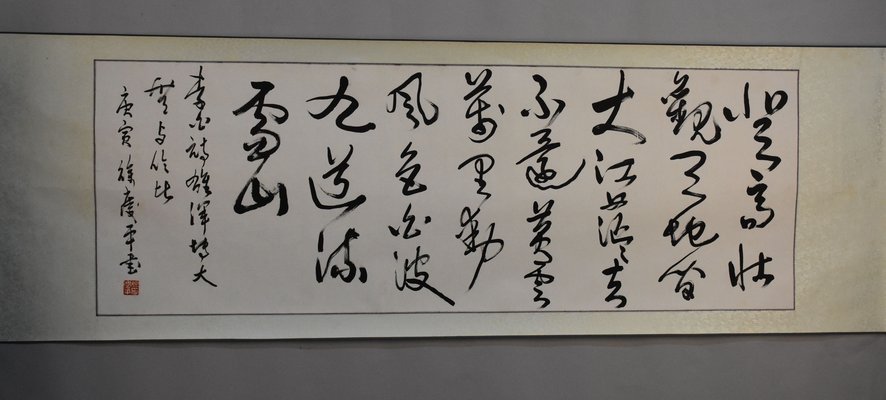 登高壮
觀天地间
大江茫茫去
不還黄雲
萬里動
風色白波
九道流
雪山
李白詩雄渾博大
庚寅徐慶平書